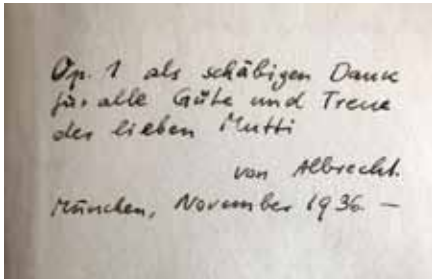 Op. 1 als schäbigen Dank
für alle Güte und Treue
der lieben Mutti
von Albrecht.
München, November 1936 —